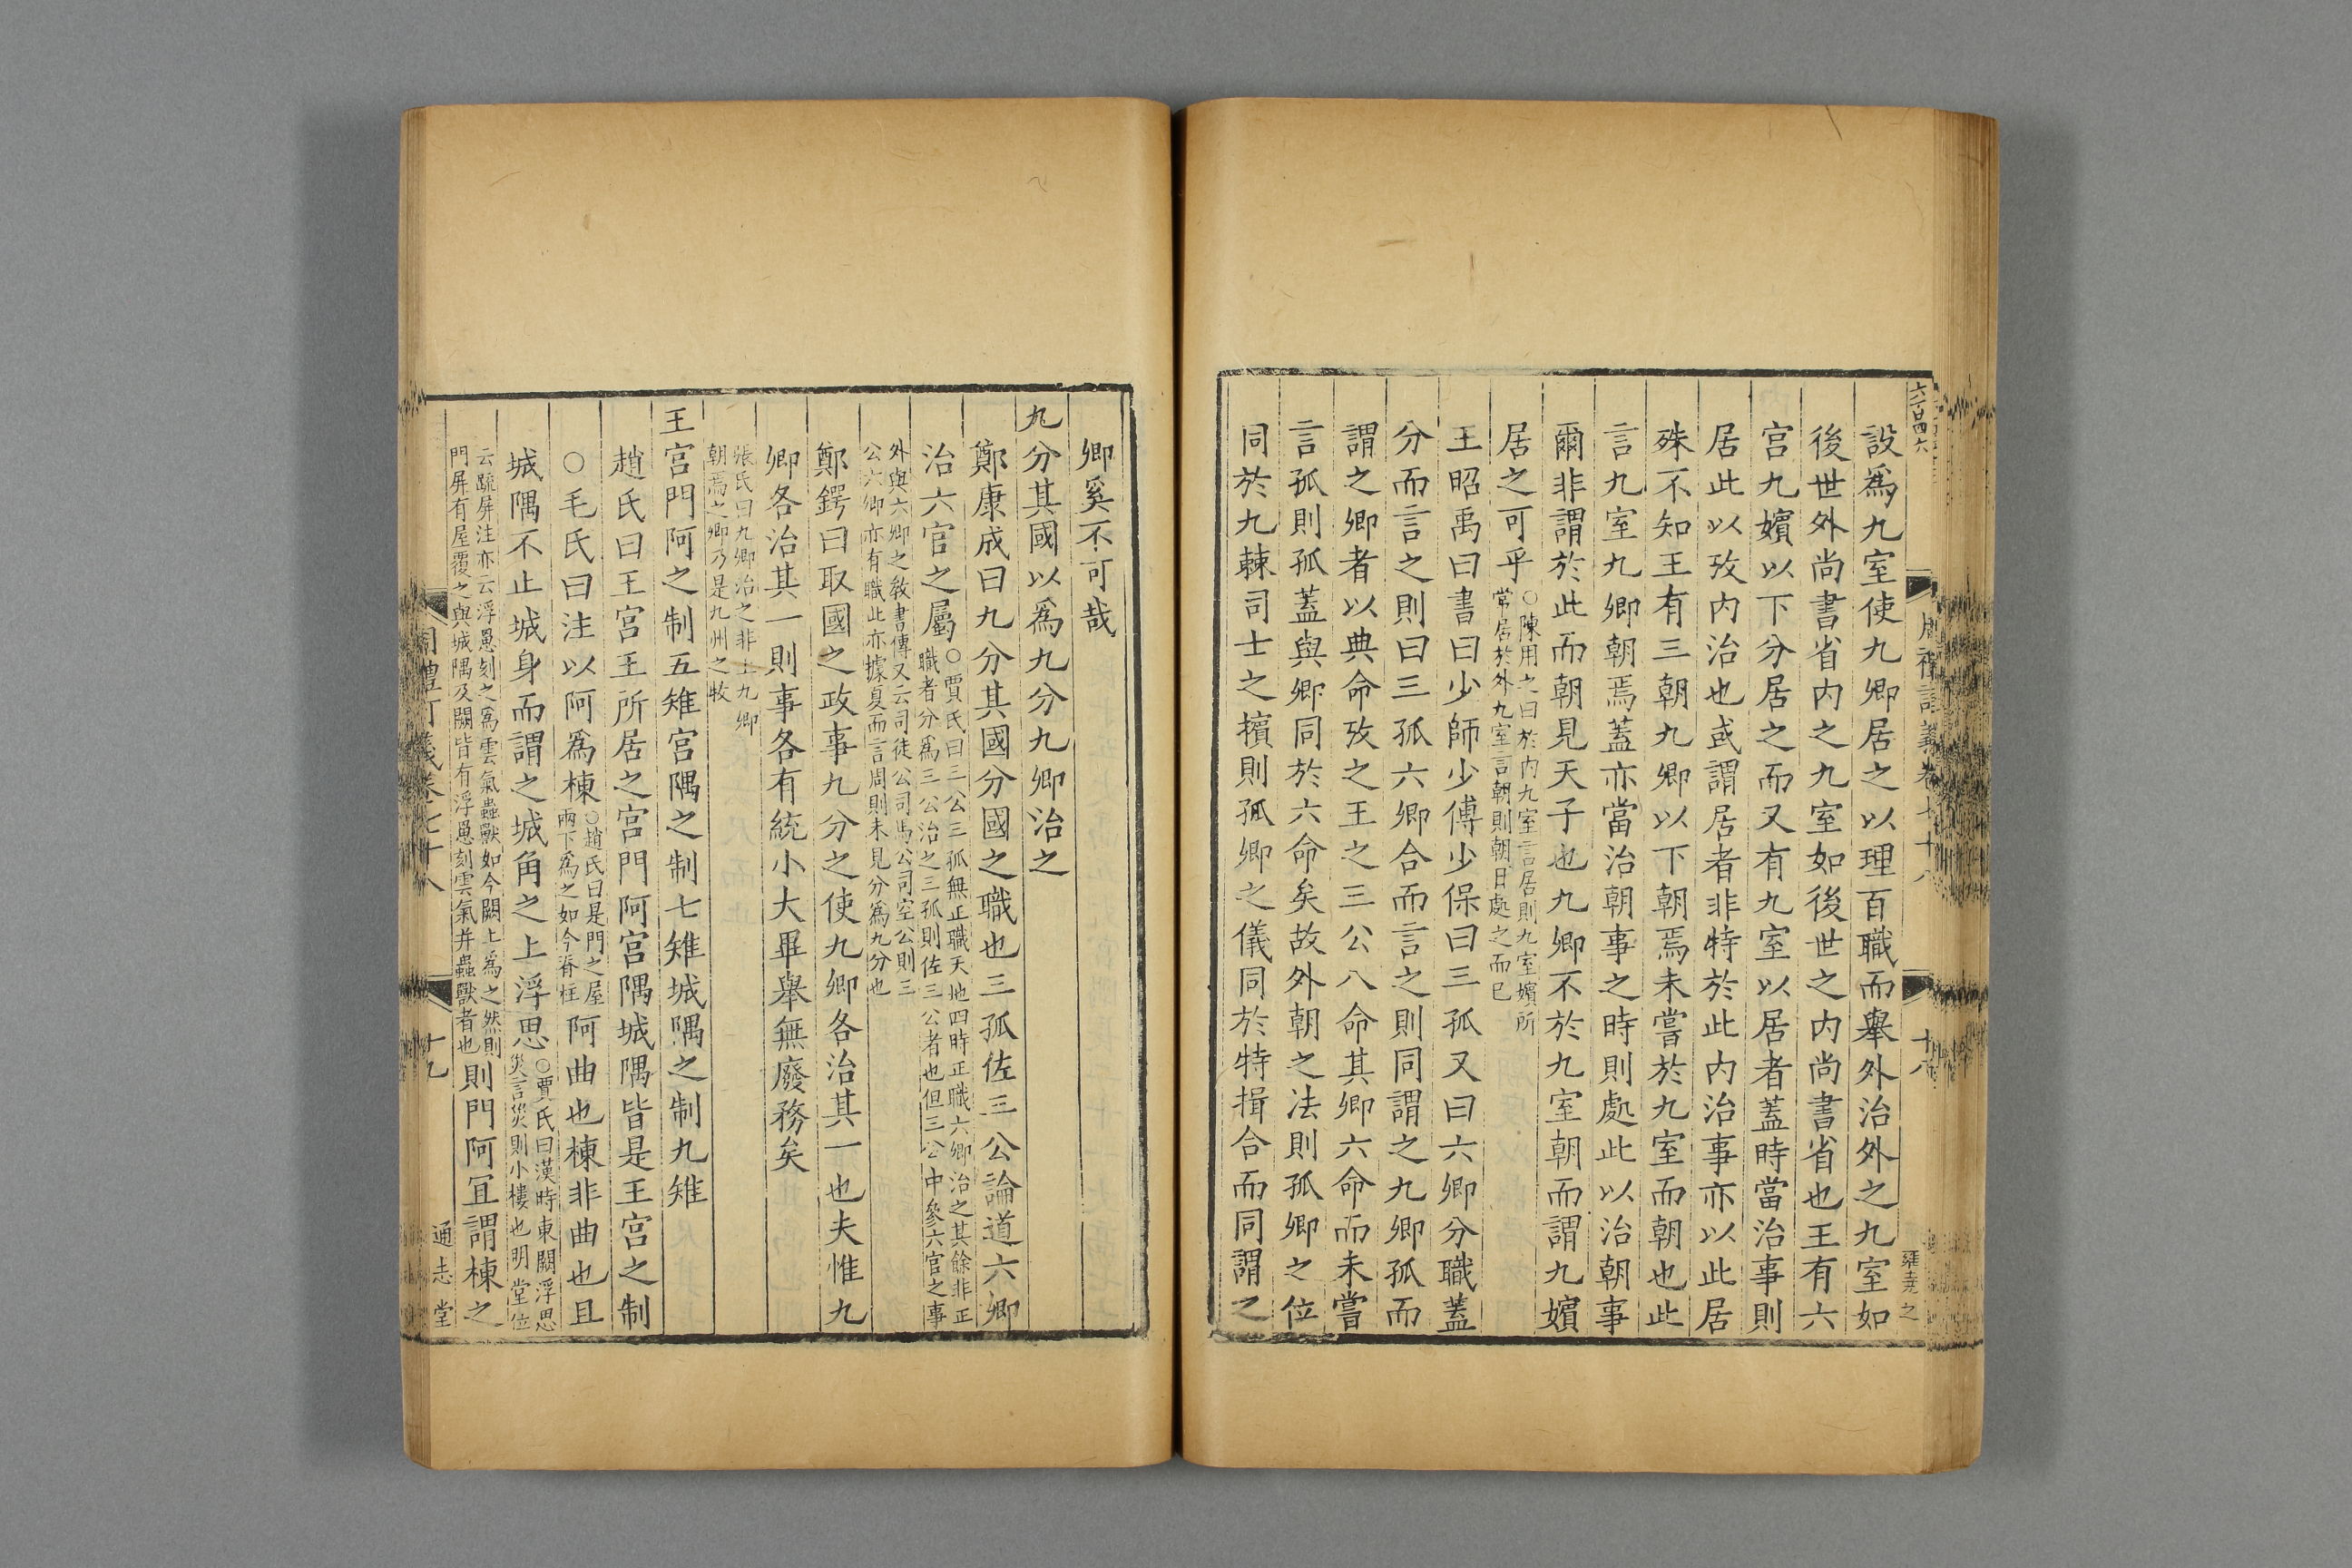 六百四六
設爲九室使九卿居之以理百職而舉外治外之九室如
後世外尚書省内之九室如後世之内尚書省也王有六
宫九嬪以下分居之而又有九室以居者蓋時當治事則
居此以攷内治也或謂居者非特於此内治事亦以此居
殊不知王有三朝九卿以下朝焉未嘗於九室而朝也此
言九室九卿朝焉蓋亦當治朝事之時則處此以治朝事
爾非謂於此而朝見天子也九卿不於九室朝而謂九嬪
居之可乎
○陳用之曰於内九室言居則九室嬪所
常居於外九室言朝則朝日處之而已
王昭禹曰書曰少師少傅少保曰三孤又曰六卿分職蓋
分而言之則曰三孤六卿合而言之則同謂之九卿孤而
謂之卿者以典命攷之王之三公八命其卿六命而未嘗
言孤則孤蓋與卿同於六命矣故外朝之法則孤卿之位
同於九棘司士之擯則孤卿之儀同於特揖合而同謂之
卿奚不可哉
九分其國以爲九分九卿治之
鄭康成曰九分其國分國之職也三孤佐三公論道六卿
治六官之屬
○賈氏曰三公三孤無正職天地四時正職六卿治之其餘非正
職者分爲三公治之三孤則佐三公者也但三公中參六官之事
外與六卿之敎書傳又云司徒公司馬公司空公則三
公六卿亦有職此亦據夏而言周則未見分爲九分也
鄭鍔曰取國之政事九分之使九卿各治其一也夫惟九
卿各治其一則事各有統小大畢舉無廢務矣
張氏曰九卿治之非上九卿
朝焉之卿乃是九州之牧
王宫門阿之制五雉宫隅之制七雉城隅之制九雉
趙氏曰王宫王所居之宫門阿宫隅城隅皆是王宫之制
○毛氏曰注以阿爲棟
○趙氏曰是門之屋
兩下爲之如今脊柱
阿曲也棟非曲也且
城隅不止城身而謂之城角之上浮思
○賈氏曰漢時東闕浮思
災言災則小樓也明堂位
云疏屏注亦云浮罳刻之爲雲氣蟲獸如今闕上爲之然則
門屏有屋覆之與城隅及闕皆有浮罳刻雲氣并蟲獸者也
則門阿宜謂棟之
周禮訂義卷七十八
十九
通志堂